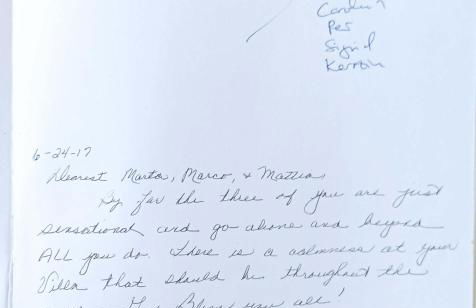 Per
Sigrid
Kerstin
6-24-17
Dearest Marta, Marco, & Mattia,
By far the three of you are just
sensational and go above and beyond
ALL you do. There is a calmness at your
Villa that should be throughout the
Bless you all!